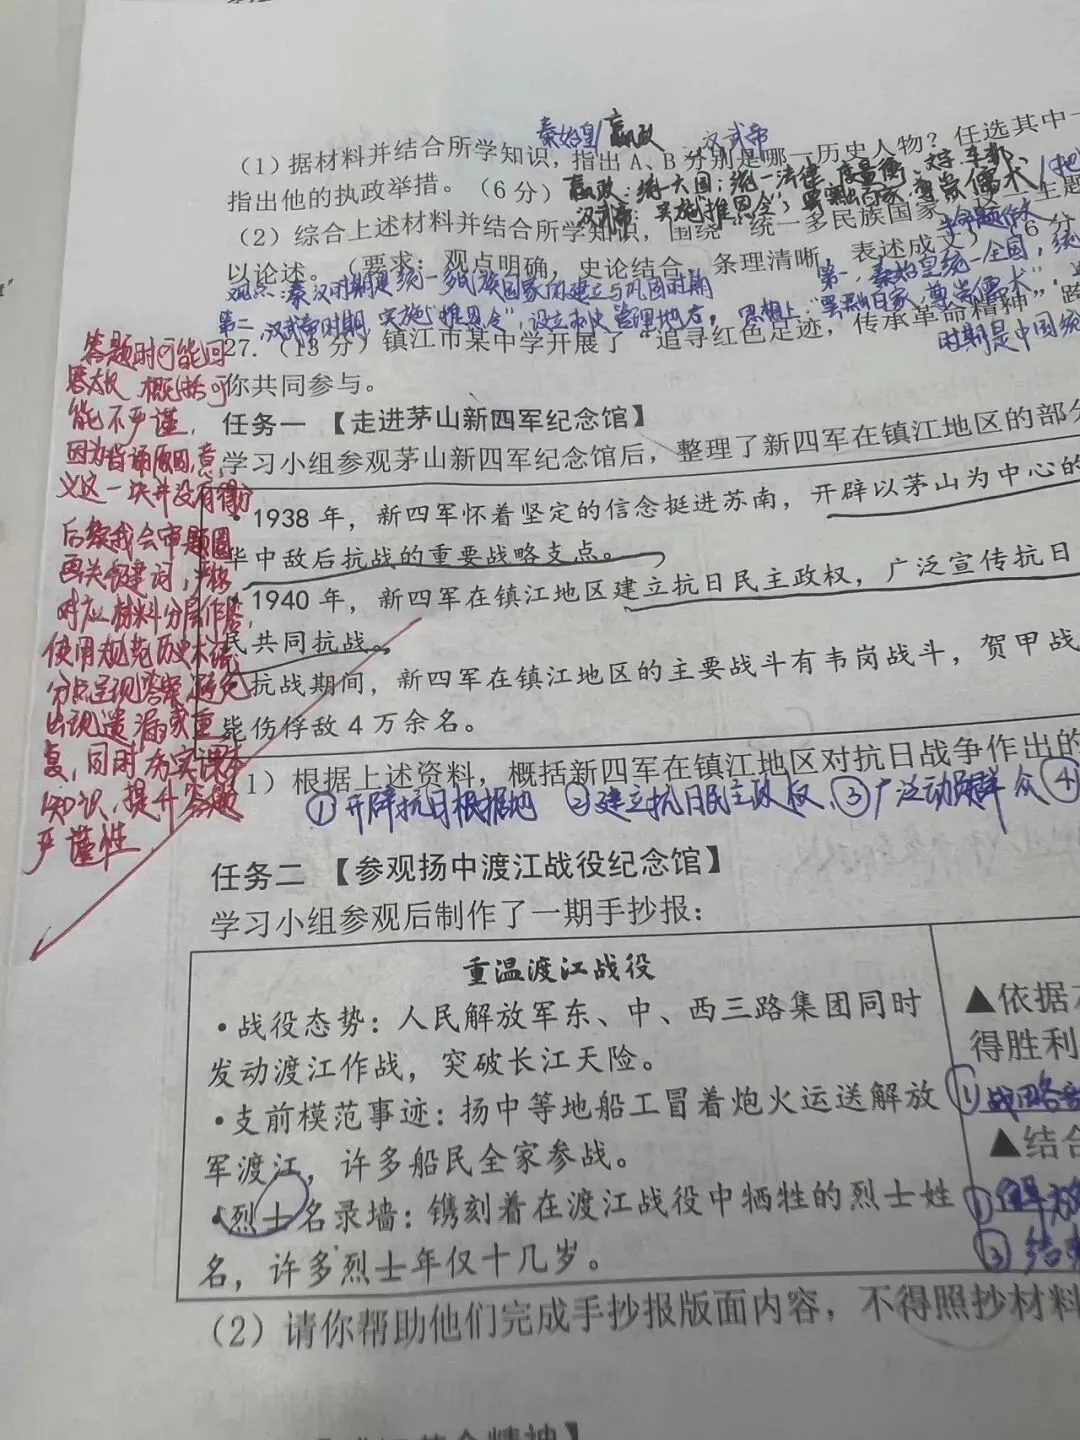 秦始皇/嬴政 汉武帝
(1)据材料并结合所学知识,指出A、B分别是哪一历史人物?任选其中一
指出他的执政举措。(6分)嬴政:统一六国;统一法律、度量衡、文字、车轨
汉武帝:实施推恩令;罢黜百家,尊崇儒术
(2)综合上述材料并结合所学知识,围绕“统一多民族国家 主题
以论述。(要求:观点明确,史论结合,条理清晰,表述成文)(6分
观点:秦汉时期是统一多民族国家的建立与巩固时期 第一,秦始皇统一全国,统
第二,汉武帝时期,实施“推恩令”,设立刺史管理地方,思想上:“罢黜百家,尊崇儒术”,
时期是中国统
27.(13分)镇江市某中学开展了“追寻红色足迹,传承革命精神”跨
你共同参与。
任务一【走进茅山新四军纪念馆】
学习小组参观茅山新四军纪念馆后,整理了新四军在镇江地区的部分
·1938年,新四军怀着坚定的信念挺进苏南,开辟以茅山为中心的
华中敌后抗战的重要战略支点。
·1940年,新四军在镇江地区建立抗日民主政权,广泛宣传抗日
民共同抗战。
抗战期间,新四军在镇江地区的主要战斗有韦岗战斗,贺甲战
毙伤俘敌4万余名。
1)根据上述资料,概括新四军在镇江地区对抗日战争作出的
①开辟抗日根据地 ②建立抗日民主政权 ③广泛动员群众 ④
答题时可能回
答太长,概括可
能不严谨,
因为背诵原因,意
义这一块并没有得分
后续我会审题圈
画关键词,严格
对应材料分层作答,
使用规范历史术语
分点呈现答案,避免
出现遗漏或重
复,同时夯实课本
知识,提升答题
严谨性
任务二【参观扬中渡江战役纪念馆】
学习小组参观后制作了一期手抄报:
重温渡江战役
·战役态势:人民解放军东、中、西三路集团同时
发动渡江作战,突破长江天险。
·支前模范事迹:扬中等地船工冒着炮火运送解放
军渡江,许多船民全家参战。
·烈士名录墙:镌刻着在渡江战役中牺牲的烈士姓
名,许多烈士年仅十几岁。
▲依据
得胜利
①战略
▲结合
①解放
③结束
(2)请你帮助他们完成手抄报版面内容,不得照抄材料